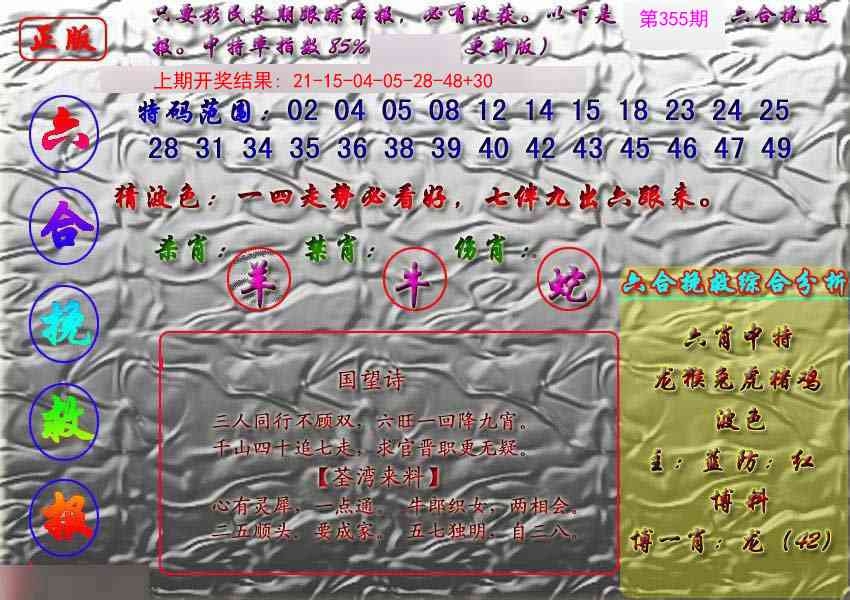 正版
只要彩民长期跟踪本报，必有收获。以下是 第355期 六合挽救
报。中特率指数85% 更新版）
上期开奖结果：21-15-04-05-28-48+30
特码范围：02 04 05 08 12 14 15 18 23 24 25
28 31 34 35 36 38 39 40 42 43 45 46 47 49
猜波色：一四走势必看好，七伴九出六跟来。
杀肖：羊 禁肖：牛 伤肖：蛇
六
合
挽
救
报
国望诗
三人同行不顾双，六旺一回降九宵。
千山四十追七走，求官晋职更无疑。
【荃湾来料】
心有灵犀，一点通。 牛郎织女，两相会。
二五顺头，要成家。 五七独明，自三八。
六合挽救综合分析
六肖中特
龙猴兔虎猪鸡
波色
主：蓝防：红
博料
博一肖：龙（42）